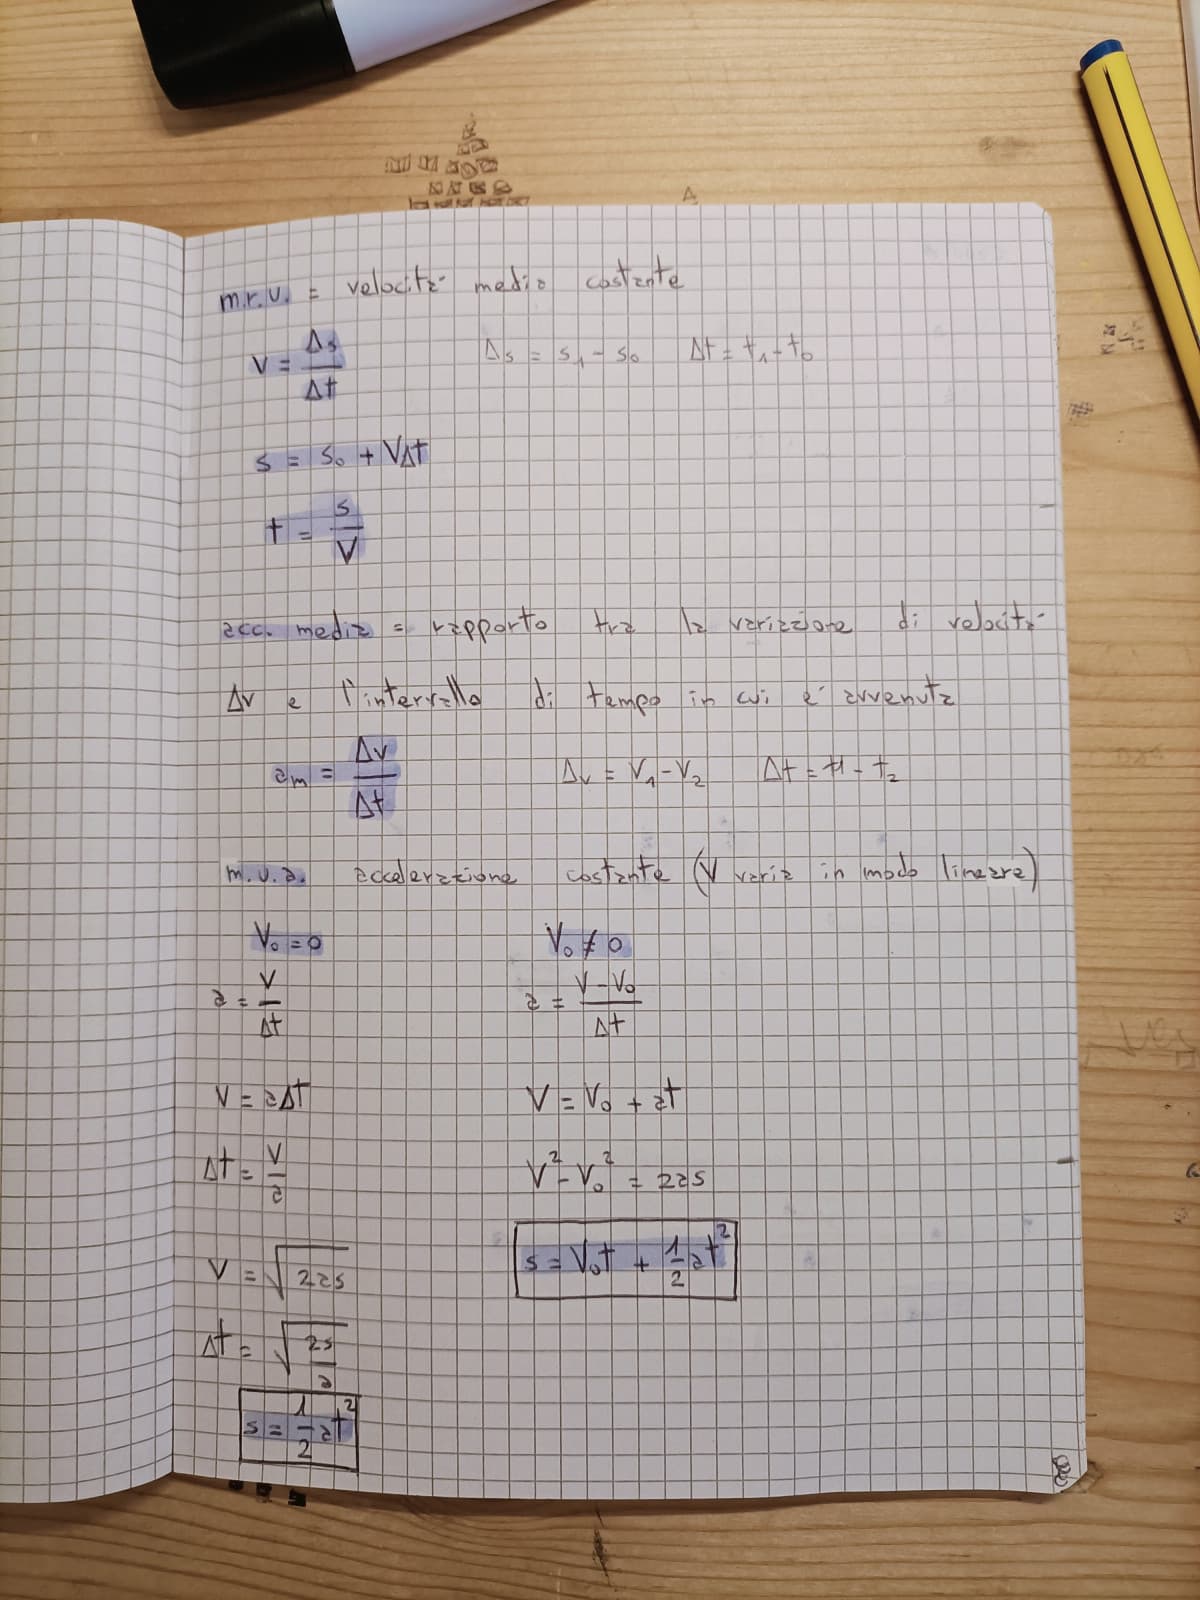 m.r.u. = velocità media costante
V = Δs/Δt    Δs = s₁ - s₀    Δt = t₁ - t₀
s = s₀ + VΔt
t = s/V
acc. media = rapporto tra la variazione di velocità
Δv e l'intervallo di tempo in cui è avvenuta
am = Δv/Δt    Δv = V₁ - V₂    Δt = t1 - t₂
m.u.a. accelerazione costante (V varia in modo lineare)
V₀ = 0    V₀ ≠ 0
a = V/Δt    a = (V - V₀)/Δt
V = aΔt    V = V₀ + at
Δt = V/a    V² - V₀² = 2as
V = √2as    s = V₀t + 1/2 at²
Δt = √2s/a
s = 1/2 at²